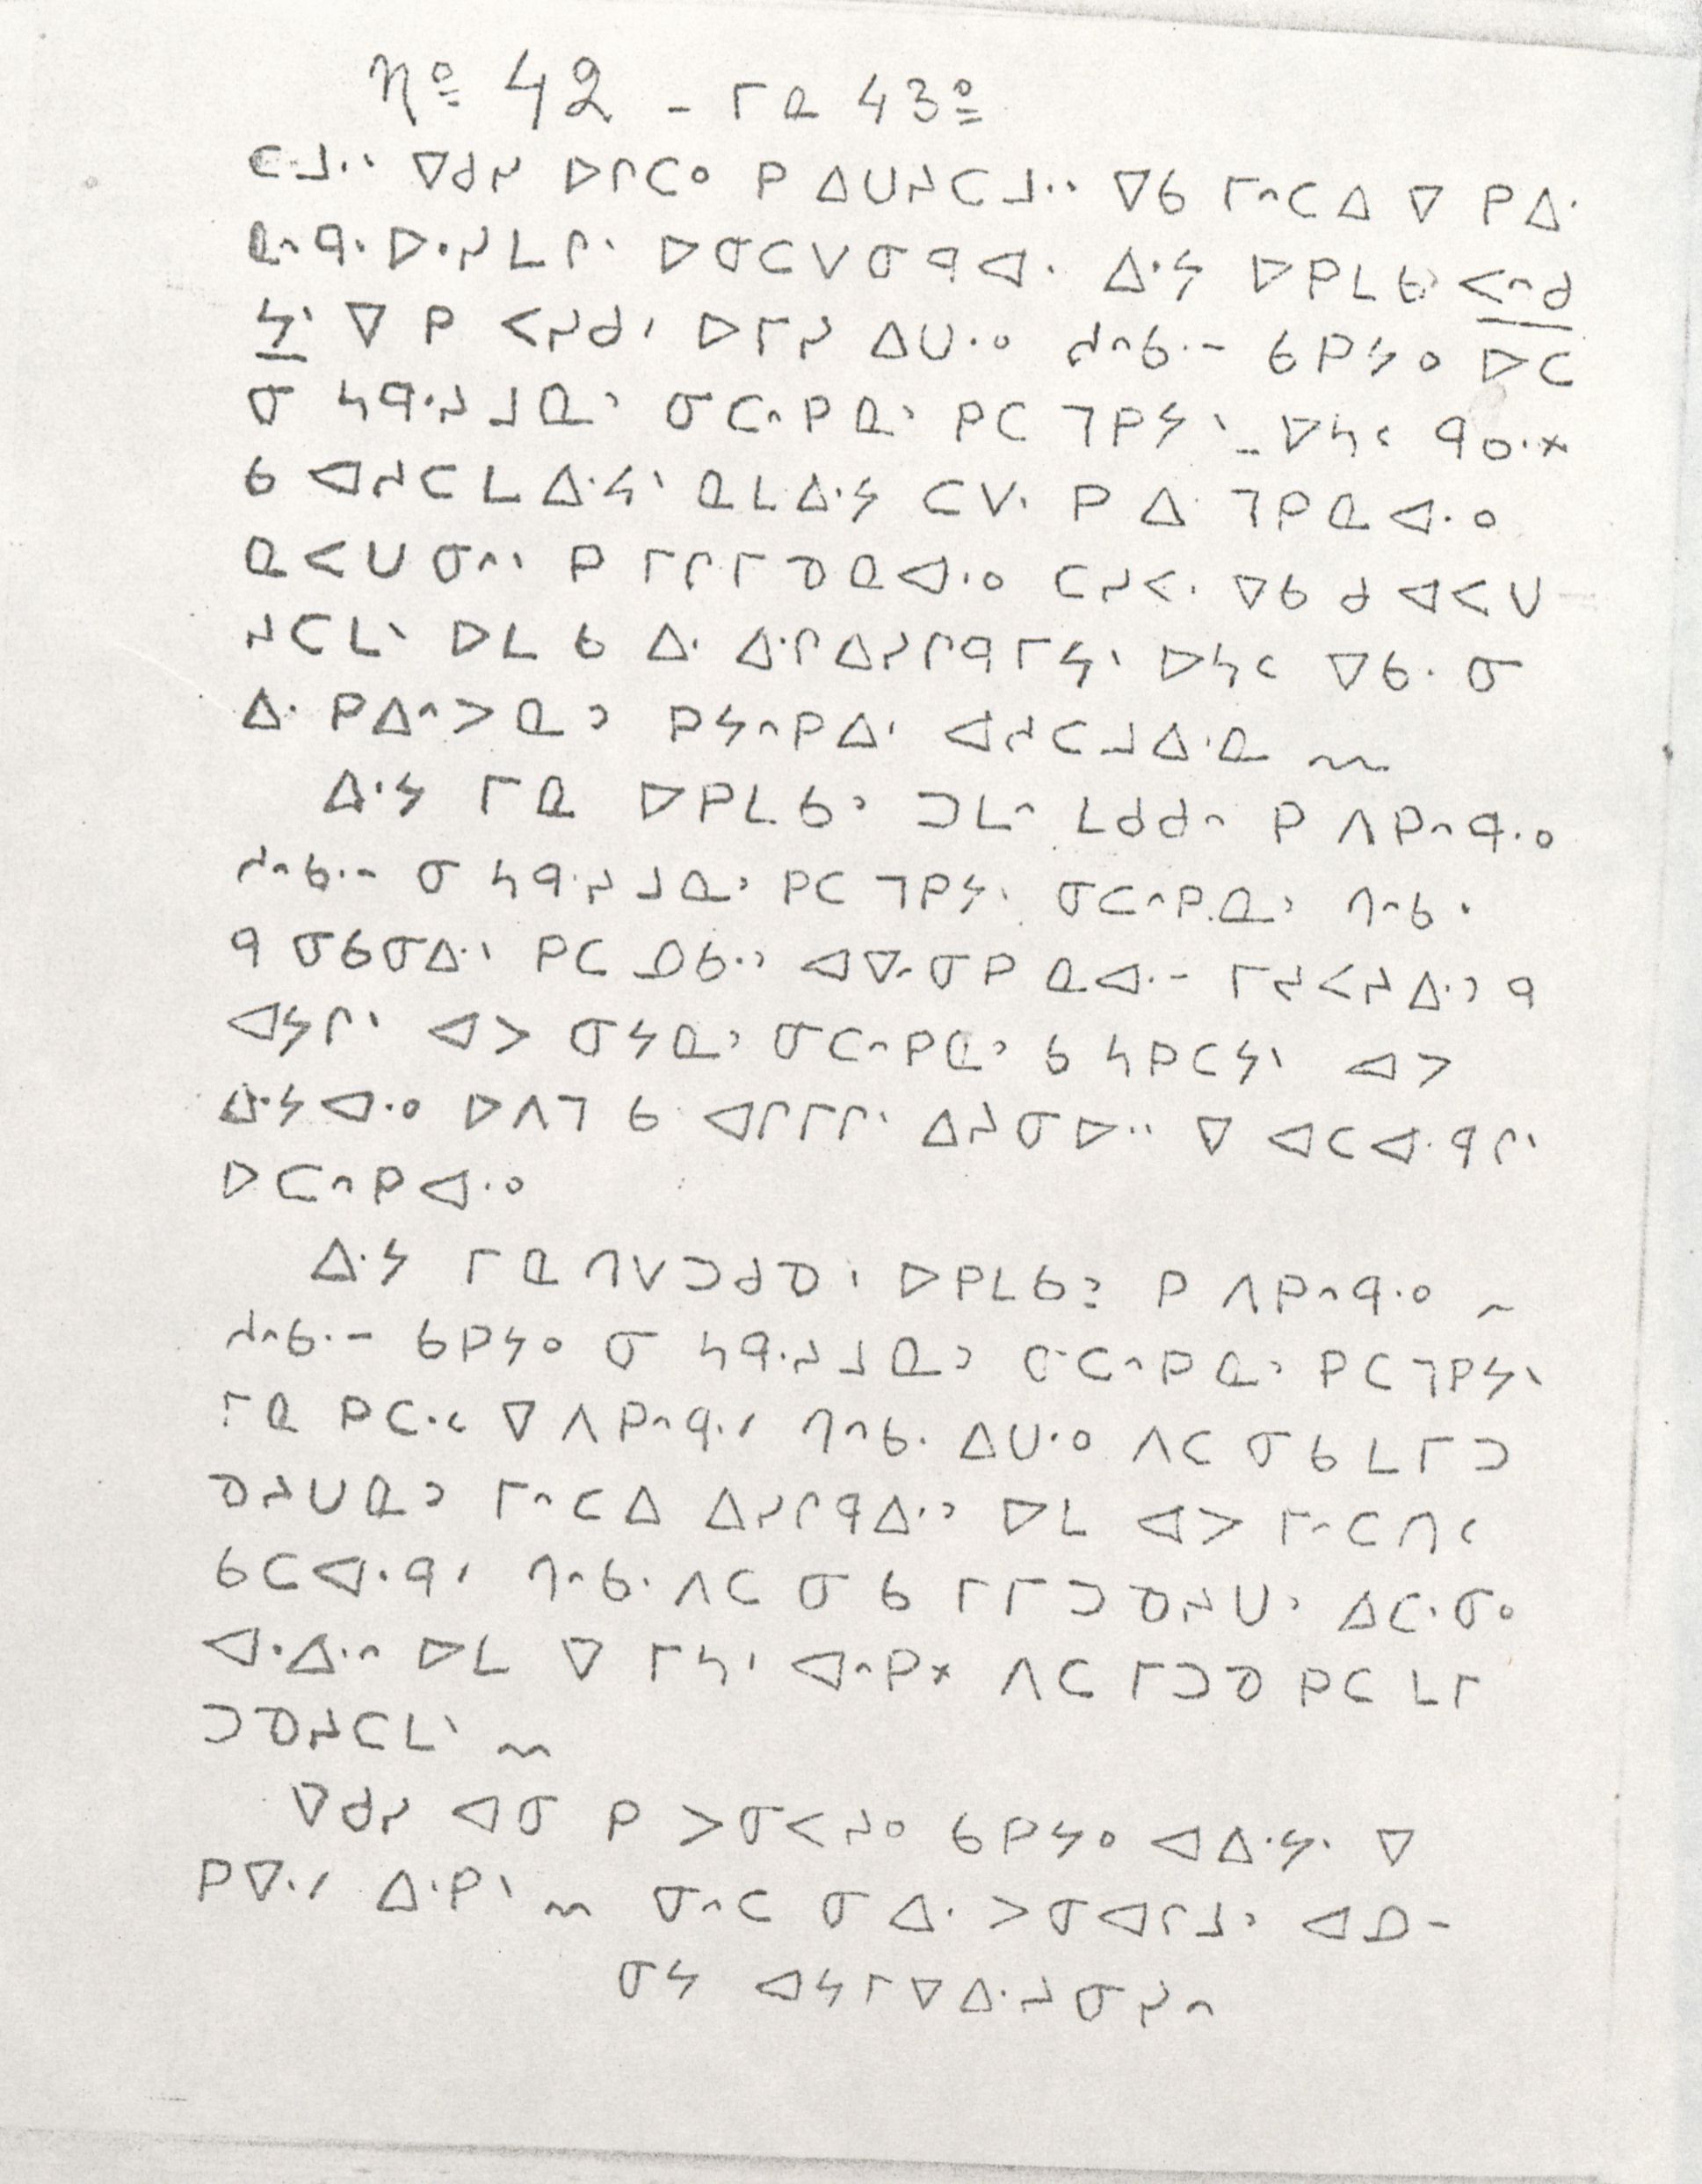 Nº 42 - ᒥᓇ 43º
ᑕᒧᐧᐠ ᐁᑯᓯ ᐅᒋᑕᐤ ᑭ ᐃᑌᓯᑕᒧᐧᐠ ᐁᑲ ᒥᐢᑕᐃ ᐁ ᑭᐃᐧ
ᓇᐢᑫᐧᐅᐧᓯᒪᒋᐠ ᐅᓂᑕᐯᓂᑫᐊᐧ ᐃᐧᔭ ᐅᑭᒪᑲᐣ ᐸᐢᑯ
ᔭᐠ ᐁ ᑭ ᐸᓯᑯᐟ ᐅᒥᓯ ᐃᑌᐧᐤ ᓱᐢᑲᐧᐨ ᑲᑭᔭᐤ ᐅᑕ
ᓂ ᓴᑫᐧᓯᒧᓇᐣ ᓂᑕᐢᑭᓇᐣ ᑭᑕ ᒣᑭᔭᕁ ᐁᓴᑊ ᑫᓄᐧᕽ
ᑲ ᐊᓯᑕᒪᐃᐧᔭᐠ ᓇᒪᐃᐧᔭ ᑕᐯᐧ ᑭ ᐃᐧ ᒣᑭᓇᐊᐧᐤ
ᓇᐸᑌᓂᐢᐠ ᑭ ᒥᒋᒥᓄᓇᐊᐧᐤ ᑕᓯᐸᐧ ᐁᑲ ᑯ ᐊᐸᑌ
ᓯᑕᒪᐠ ᐅᒪ ᑲ ᐃᐧ ᐃᐧᒋᐃᓯᒋᑫᒥᔭᐠ ᐅᓴᑊ ᐁᑲᐧ ᓂ
ᐃᐧ ᑭᐃᐢᐳᓇᐣ ᑭᔭᐢᑭᐃᐧᐟ ᐊᓯᑕᒧᐃᐧᓇ
ᐃᐧᔭ ᒥᓇ ᐅᑭᒪᑲᐣ ᑐᒪᐢ ᒪᑯᑯᐢ ᑭ ᐱᑭᐢᑫᐧᐤ
ᓱᐢᑲᐧᐨ ᓂ ᓴᑫᐧᓯᒧᓇᐣ ᑭᑕ ᒣᑭᔭᕁ ᓂᑕᐢᑭᓇᐣ ᒋᐢᑲᐧ
ᑫ ᓂᑲᓂᐃᐧᐠ ᑭᑕ ᓅᑲᐧᐣ ᐊᐁᐧᓂᑭ ᓇᐊᐧᐨ ᒥᓯᐸᓯᐃᐧᐣ ᑫ
ᐊᔭᒋᐠ ᐊᐳ ᓂᔭᓇᐣ ᓂᑕᐢᑭᓇᐣ ᑲ ᓴᑭᑕᔭᕁ ᐊᐳ
ᐃᐧᔭᐊᐧᐤ ᐅᐱᒣ ᑲ ᐊᒋᒥᒋᐠ ᐃᓯᓂᐅᐧᐠ ᐁ ᐊᑕᐊᐧᑫᒋᐠ
ᐅᑕᐢᑭᐊᐧᐤ
ᐃᐧᔭ ᒥᓇ ᒋᐯᑐᑯᓄᐟ ᐅᑭᒪᑲᐣ ᑭ ᐱᑭᐢᑫᐧᐤ
ᓱᐢᑲᐧᐨ ᑲᑭᔭᐤ ᓂ ᓴᑫᐧᓯᒧᓇᐣ ᓂᑕᐢᑭᓇᐣ ᑭᑕ ᒣᑭᔭᕁ
ᒥᓇ ᑭᑕᐧᑊ ᐁ ᐱᑭᐢᑫᐧᐟ ᒋᐢᑲᐧ ᐃᑌᐧᐤ ᐱᑕ ᓂᑲ ᒪᒥᑐ
ᓄᓯᑌᓇᐣ ᒥᐢᑕᐃ ᐃᓯᒋᑫᐃᐧᐣ ᐅᒪ ᐊᐳ ᒥᐢᑕᑎᑊ
ᑲᑕᐊᐧᑫᐟ ᒋᐢᑲᐧ ᐱᑕ ᓂ ᑲ ᒥᒥᑐᓄᓯᑌᐣ ᐃᑕᐧᓂᐤ
ᐊᐧᐃᐧᐢ ᐅᒪ ᐁ ᒥᓴᐟ ᐊᐢᑭᕽ ᐱᑕ ᒥᑐᓄ ᑭᑕ ᒪᒥ
ᑐᓄᓯᑕᒪᐠ
ᐁᑯᓯ ᐊᓂ ᑭ ᐳᓂᐸᓯᐤ ᑲᑭᔭᐤ ᐊᐃᐧᔭᐠ ᐁ
ᑭᐁᐧᐟ ᐃᐧᑭᐠ ᓂᐢᑕ ᓂ ᐃᐧ ᐳᓂᐊᒋᒧᐣ ᐊᓄᐨ
ᓂᔭ ᐊᔭᒥᐁᐃᐧᓯᓂᓯᐢ